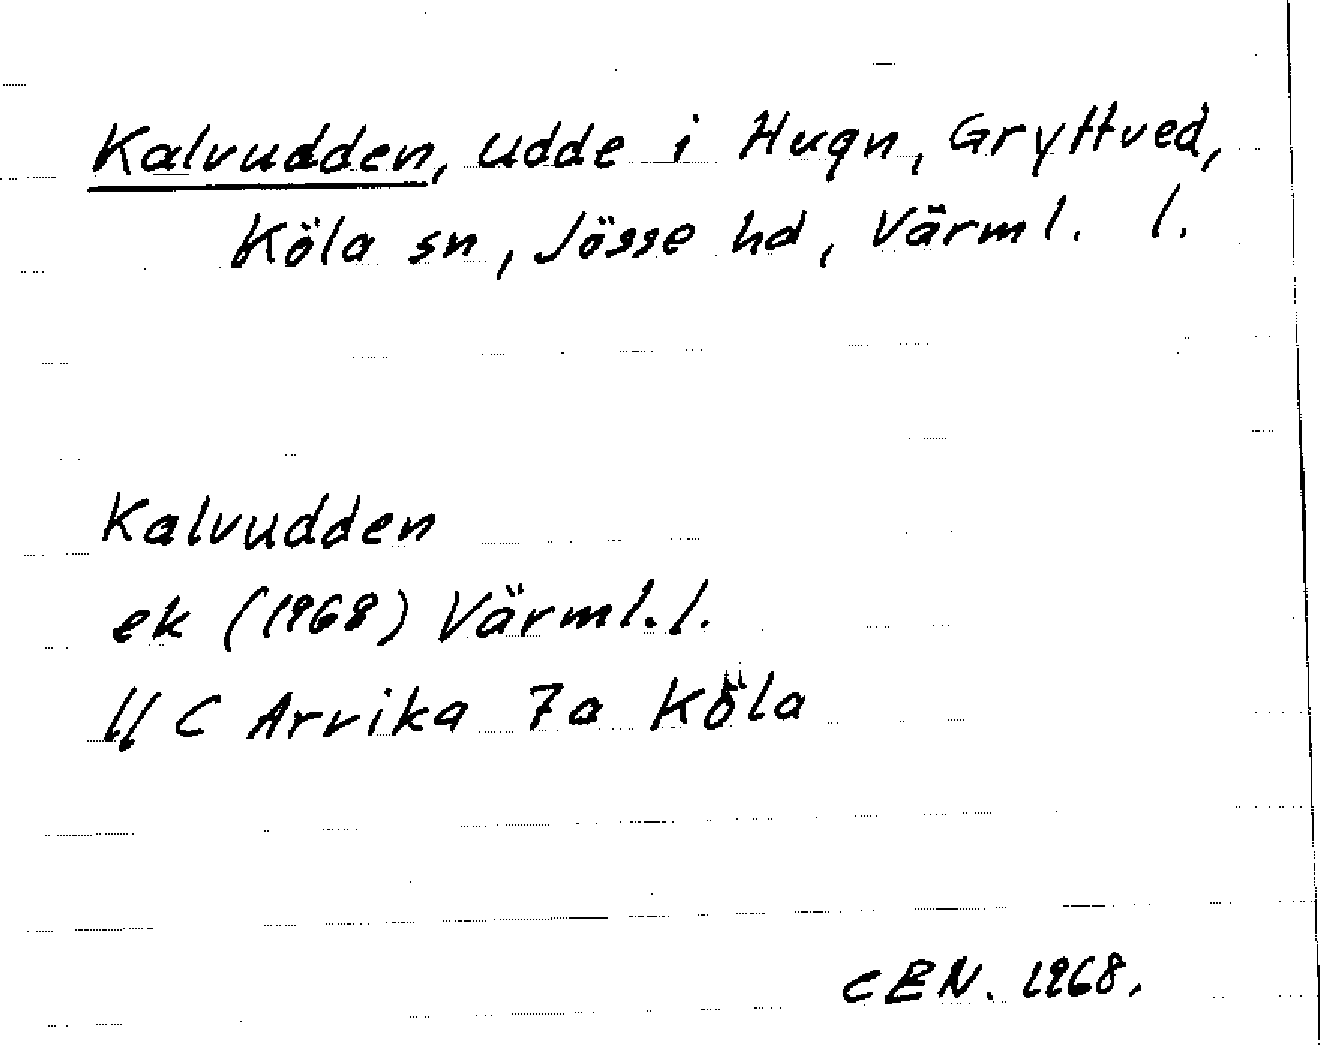 Kalvudden, udde i Hugn, Gryttved,
Köla sn, Jösse hd, Värml. l.
Kalvudden
ek (1968) Värml. l.
11 C Arvika 7a Köla
CEN. 1968.